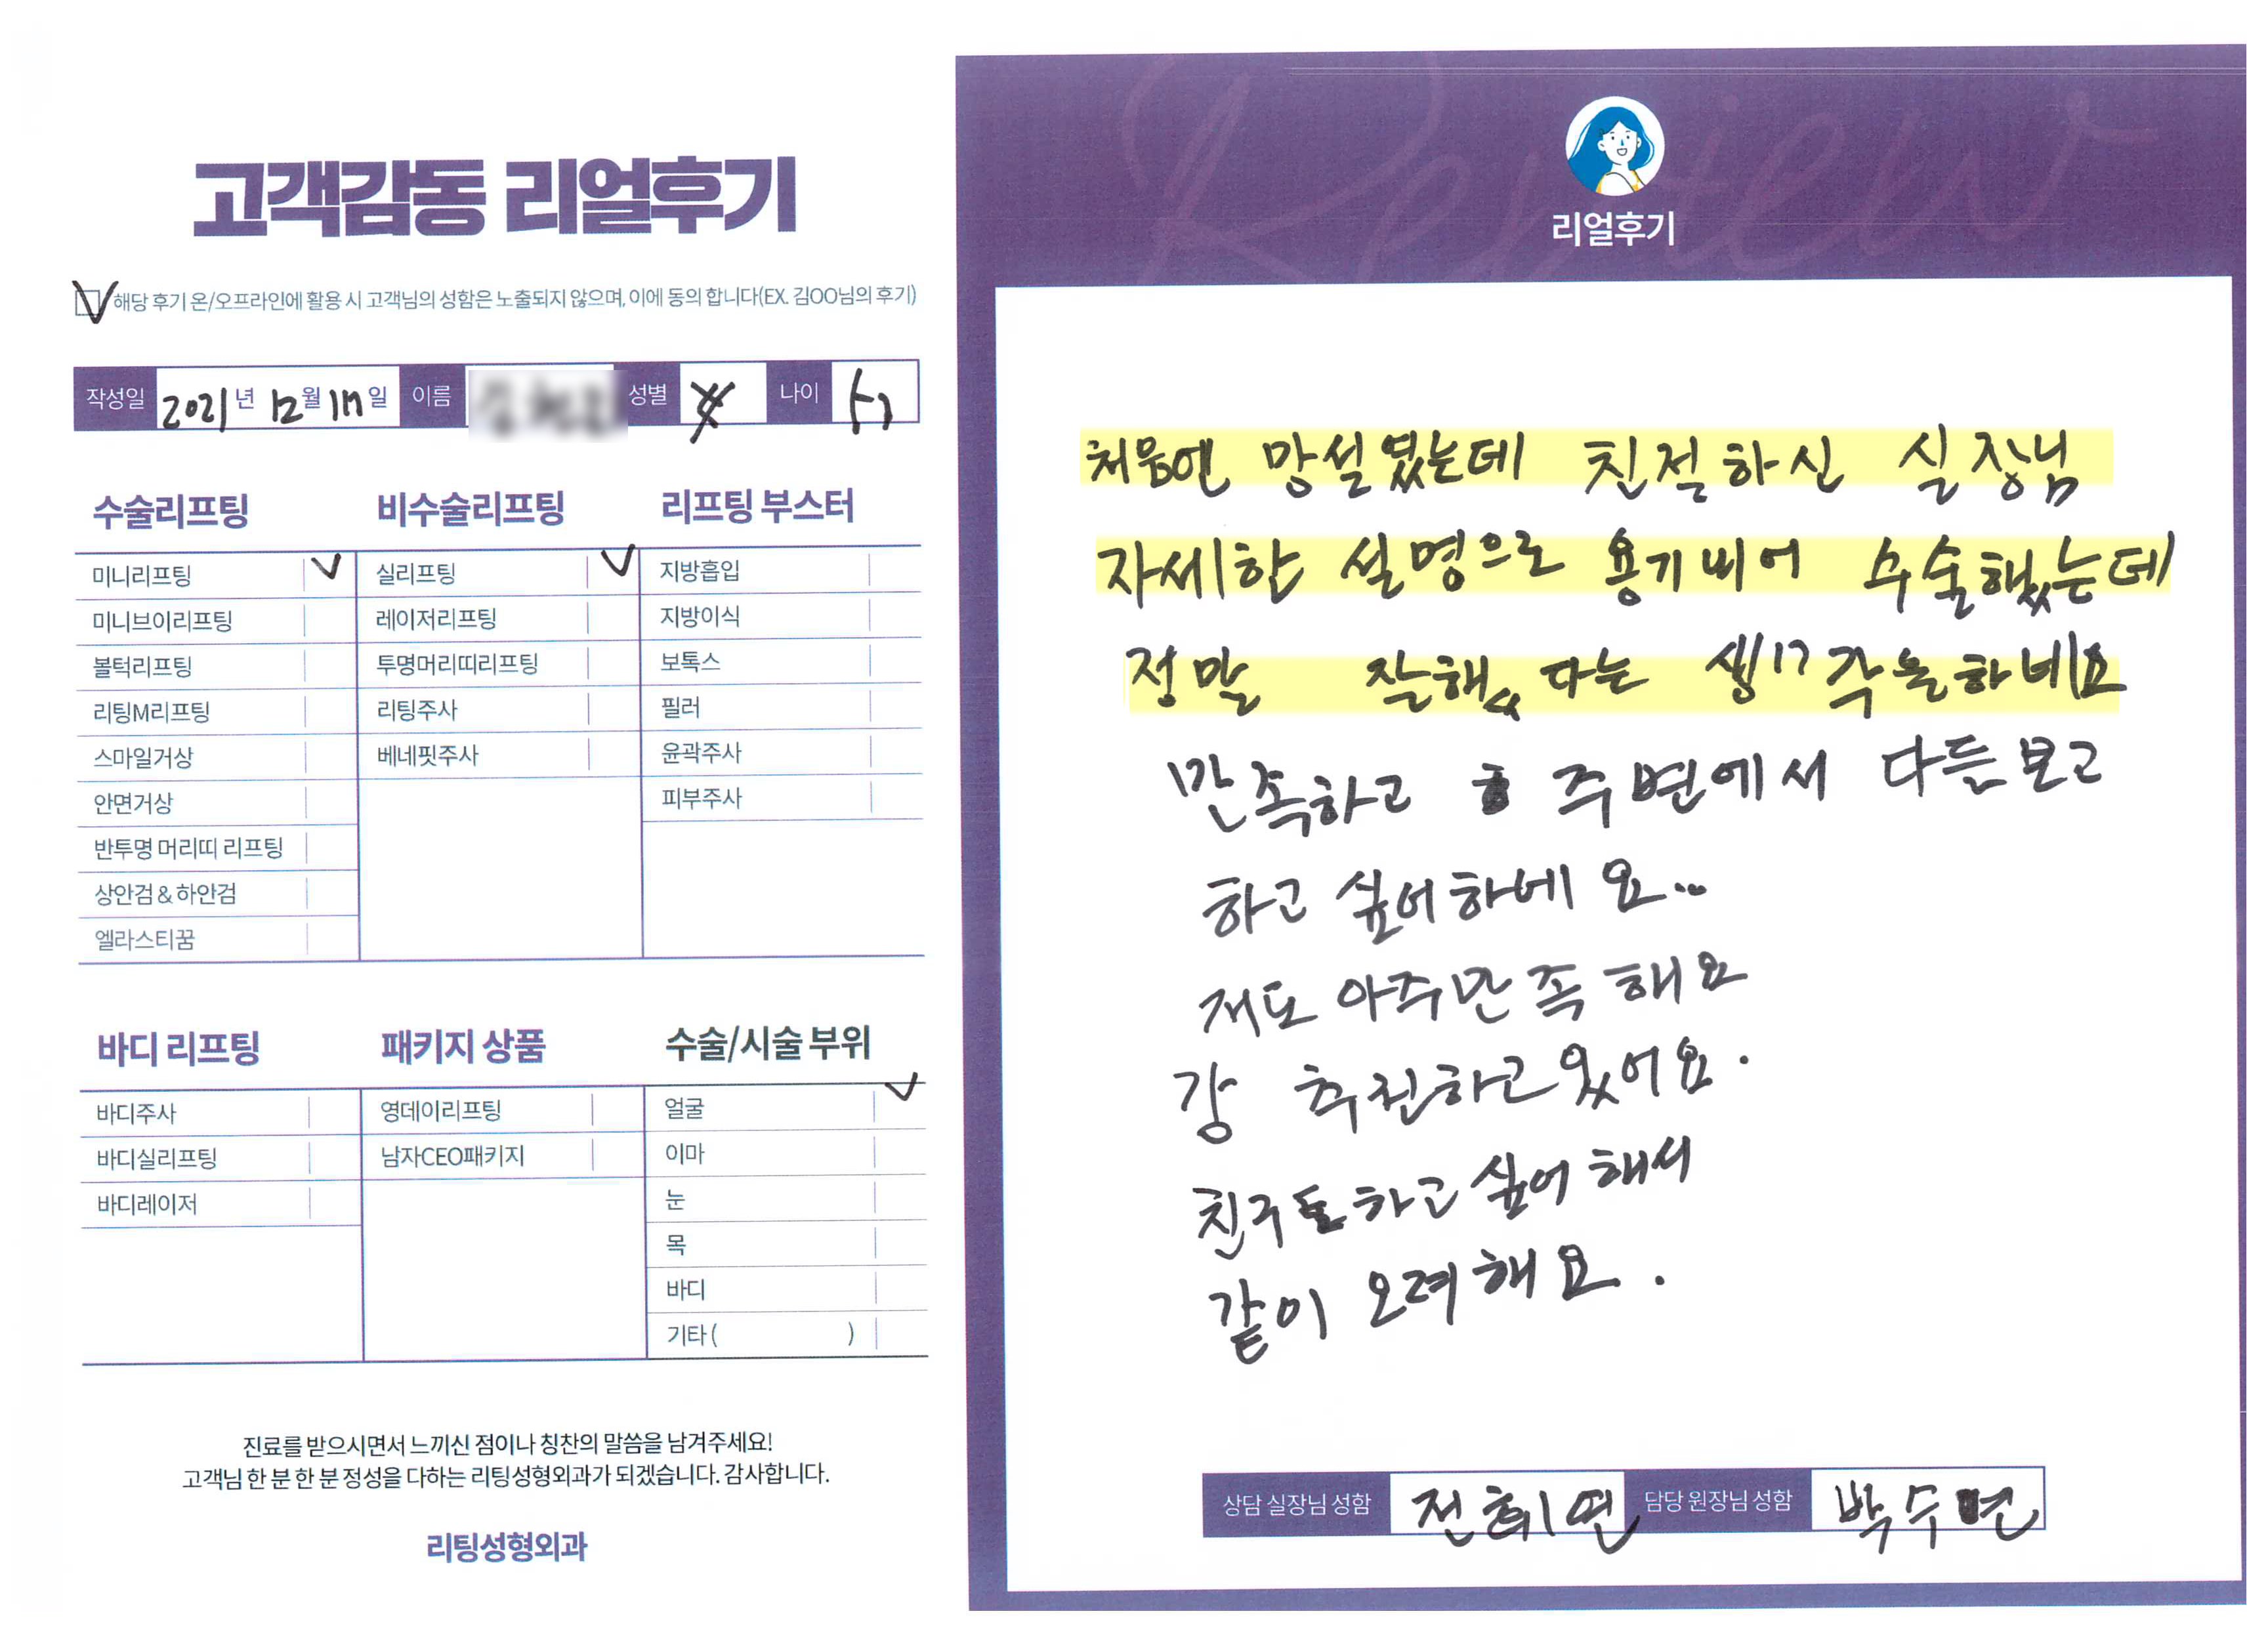 고객감동 리얼후기
해당 후기 온/오프라인에 활용 시 고객님의 성함은 노출되지 않으며, 이에 동의 합니다(EX. 김OO님의 후기)
작성일 2021년 12월 17일 이름 성별 나이
수술리프팅
미니리프팅
미니브이리프팅
볼턱리프팅
리팅M리프팅
스마일거상
안면거상
반투명 머리띠 리프팅
상안검 & 하안검
엘라스티꿈
비수술리프팅
실리프팅
레이저리프팅
투명머리띠리프팅
리팅주사
베네핏주사
리프팅 부스터
지방흡입
지방이식
보톡스
필러
윤곽주사
피부주사
바디 리프팅
바디주사
바디실리프팅
바디레이저
패키지 상품
영데이리프팅
남자CEO패키지
수술/시술 부위
얼굴
이마
눈
목
바디
기타 ( )
진료를 받으시면서 느끼신 점이나 칭찬의 말씀을 남겨주세요!
고객님 한 분 한 분 정성을 다하는 리팅성형외과가 되겠습니다. 감사합니다.
리팅성형외과
Review
리얼후기
처음엔 망설였는데 친절하신 실장님
자세한 설명으로 용기내어 수술했는데
정말 잘했다는
만족하고 주변에서 다들 보고
하고 싶어하네요..
저도 아주만족해요
강 추천하고있어요.
친구도 하고 싶어해서
같이 오려해요.
상담 실장님 성함 전희연 담당 원장님 성함 박수연